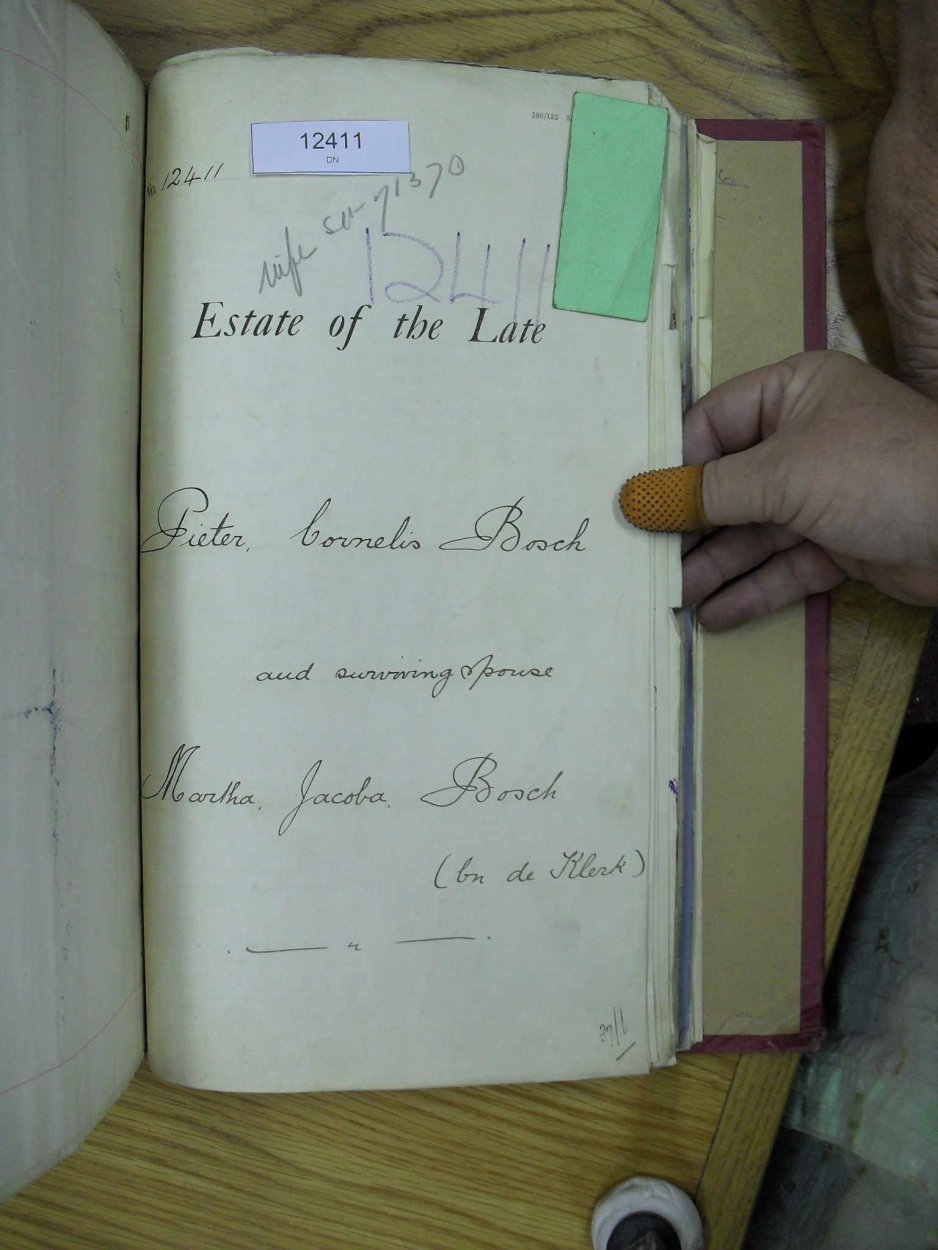 386/132
12411
DN
No. 12411
wife sv- 71370
12411
Estate of the Late
Pieter, Cornelis Bosch
and surviving spouse
Martha, Jacoba, Bosch
(bn de Klerk)